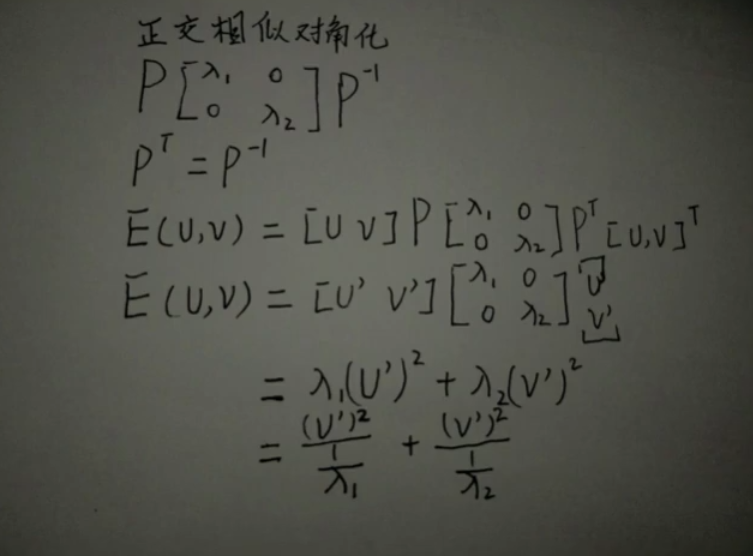 正交相似对角化
P [λ₁ 0; 0 λ₂] P⁻¹
Pᵀ = P⁻¹
E(U,V) = [U V] P [λ₁ 0; 0 λ₂] Pᵀ [U,V]ᵀ
E(U,V) = [U' V'] [λ₁ 0; 0 λ₂] [U'; V']
= λ₁(U')² + λ₂(V')²
= (U')²/(1/λ₁) + (V')²/(1/λ₂)